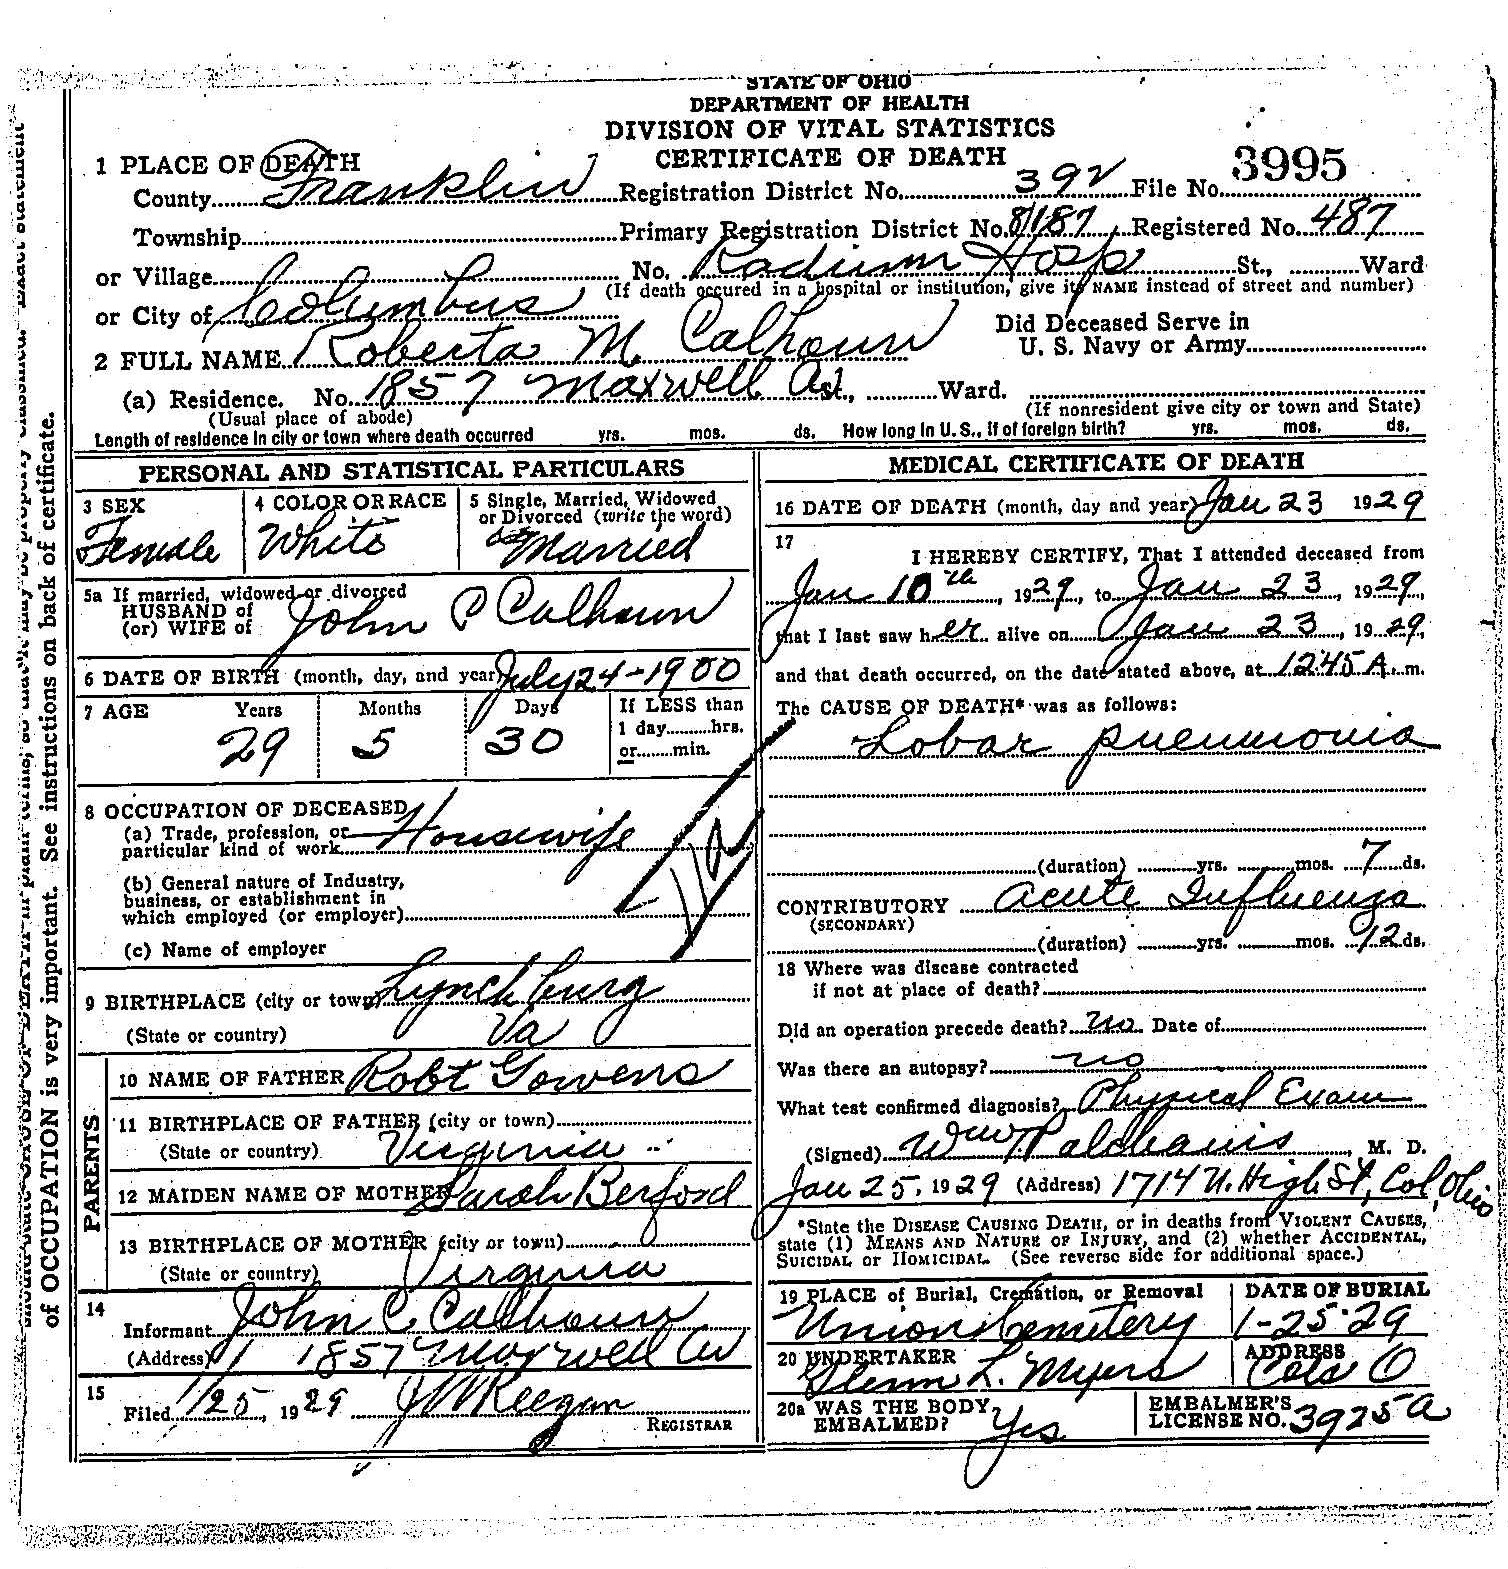 STATE OF OHIO
DEPARTMENT OF HEALTH
DIVISION OF VITAL STATISTICS
CERTIFICATE OF DEATH
1 PLACE OF DEATH
County Franklin Registration District No. 392 File No. 3995
Township Primary Registration District No. 8187 Registered No. 487
or Village No. Radium Hosp St., Ward
(If death occured in a hospital or institution, give its NAME instead of street and number)
or City of Columbus
Did Deceased Serve in
U. S. Navy or Army
2 FULL NAME Roberta M. Calhoun
(a) Residence. No. 1857 Maxwell Av St., Ward.
(Usual place of abode) (If nonresident give city or town and State)
Length of residence in city or town where death occurred yrs. mos. ds. How long in U. S., if of foreign birth? yrs. mos. ds.
PERSONAL AND STATISTICAL PARTICULARS
3 SEX
Female
4 COLOR OR RACE
White
5 Single, Married, Widowed
or Divorced (write the word)
Married
5a If married, widowed or divorced
HUSBAND of
(or) WIFE of
John C Calhoun
6 DATE OF BIRTH (month, day, and year) July 24-1900
7 AGE Years Months Days If LESS than
1 day hrs.
or min.
29 5 30
8 OCCUPATION OF DECEASED
(a) Trade, profession, or
particular kind of work Housewife
(b) General nature of Industry,
business, or establishment in
which employed (or employer)
(c) Name of employer
9 BIRTHPLACE (city or town) Lynchburg
(State or country) Va
PARENTS
10 NAME OF FATHER Robt Gowens
11 BIRTHPLACE OF FATHER (city or town)
(State or country) Virginia
12 MAIDEN NAME OF MOTHER Sarah Berford
13 BIRTHPLACE OF MOTHER (city or town)
(State or country) Virginia
14
Informant John C Calhoun
(Address) 1857 Maxwell Av
15
Filed 1/25, 1929 J M Keegan
REGISTRAR
MEDICAL CERTIFICATE OF DEATH
16 DATE OF DEATH (month, day and year) Jan 23 1929
17
I HEREBY CERTIFY, That I attended deceased from
Jan 10th, 1929, to Jan 23, 1929,
that I last saw her alive on Jan 23, 1929,
and that death occurred, on the date stated above, at 1245 A. m.
The CAUSE OF DEATH* was as follows:
Lobar pneumonia
(duration) yrs. mos. 7 ds.
CONTRIBUTORY Acute Influenza
(SECONDARY)
(duration) yrs. mos. 12 ds.
18 Where was disease contracted
if not at place of death?
Did an operation precede death? no Date of
Was there an autopsy? no
What test confirmed diagnosis? Physical Exam
(Signed) Wm, M. D.
Jan 25, 1929 (Address) 1714 N. High St, Col, Ohio
*State the DISEASE CAUSING DEATH, or in deaths from VIOLENT CAUSES,
state (1) MEANS AND NATURE OF INJURY, and (2) whether ACCIDENTAL,
SUICIDAL or HOMICIDAL. (See reverse side for additional space.)
19 PLACE of Burial, Cremation, or Removal
Union Cemetery
DATE OF BURIAL
1-25-29
20 UNDERTAKER
Glenn L. Myers
ADDRESS
Cols O
20a WAS THE BODY
EMBALMED? Yes
EMBALMER'S
LICENSE NO. 3925A
of OCCUPATION is very important. See instructions on back of certificate.